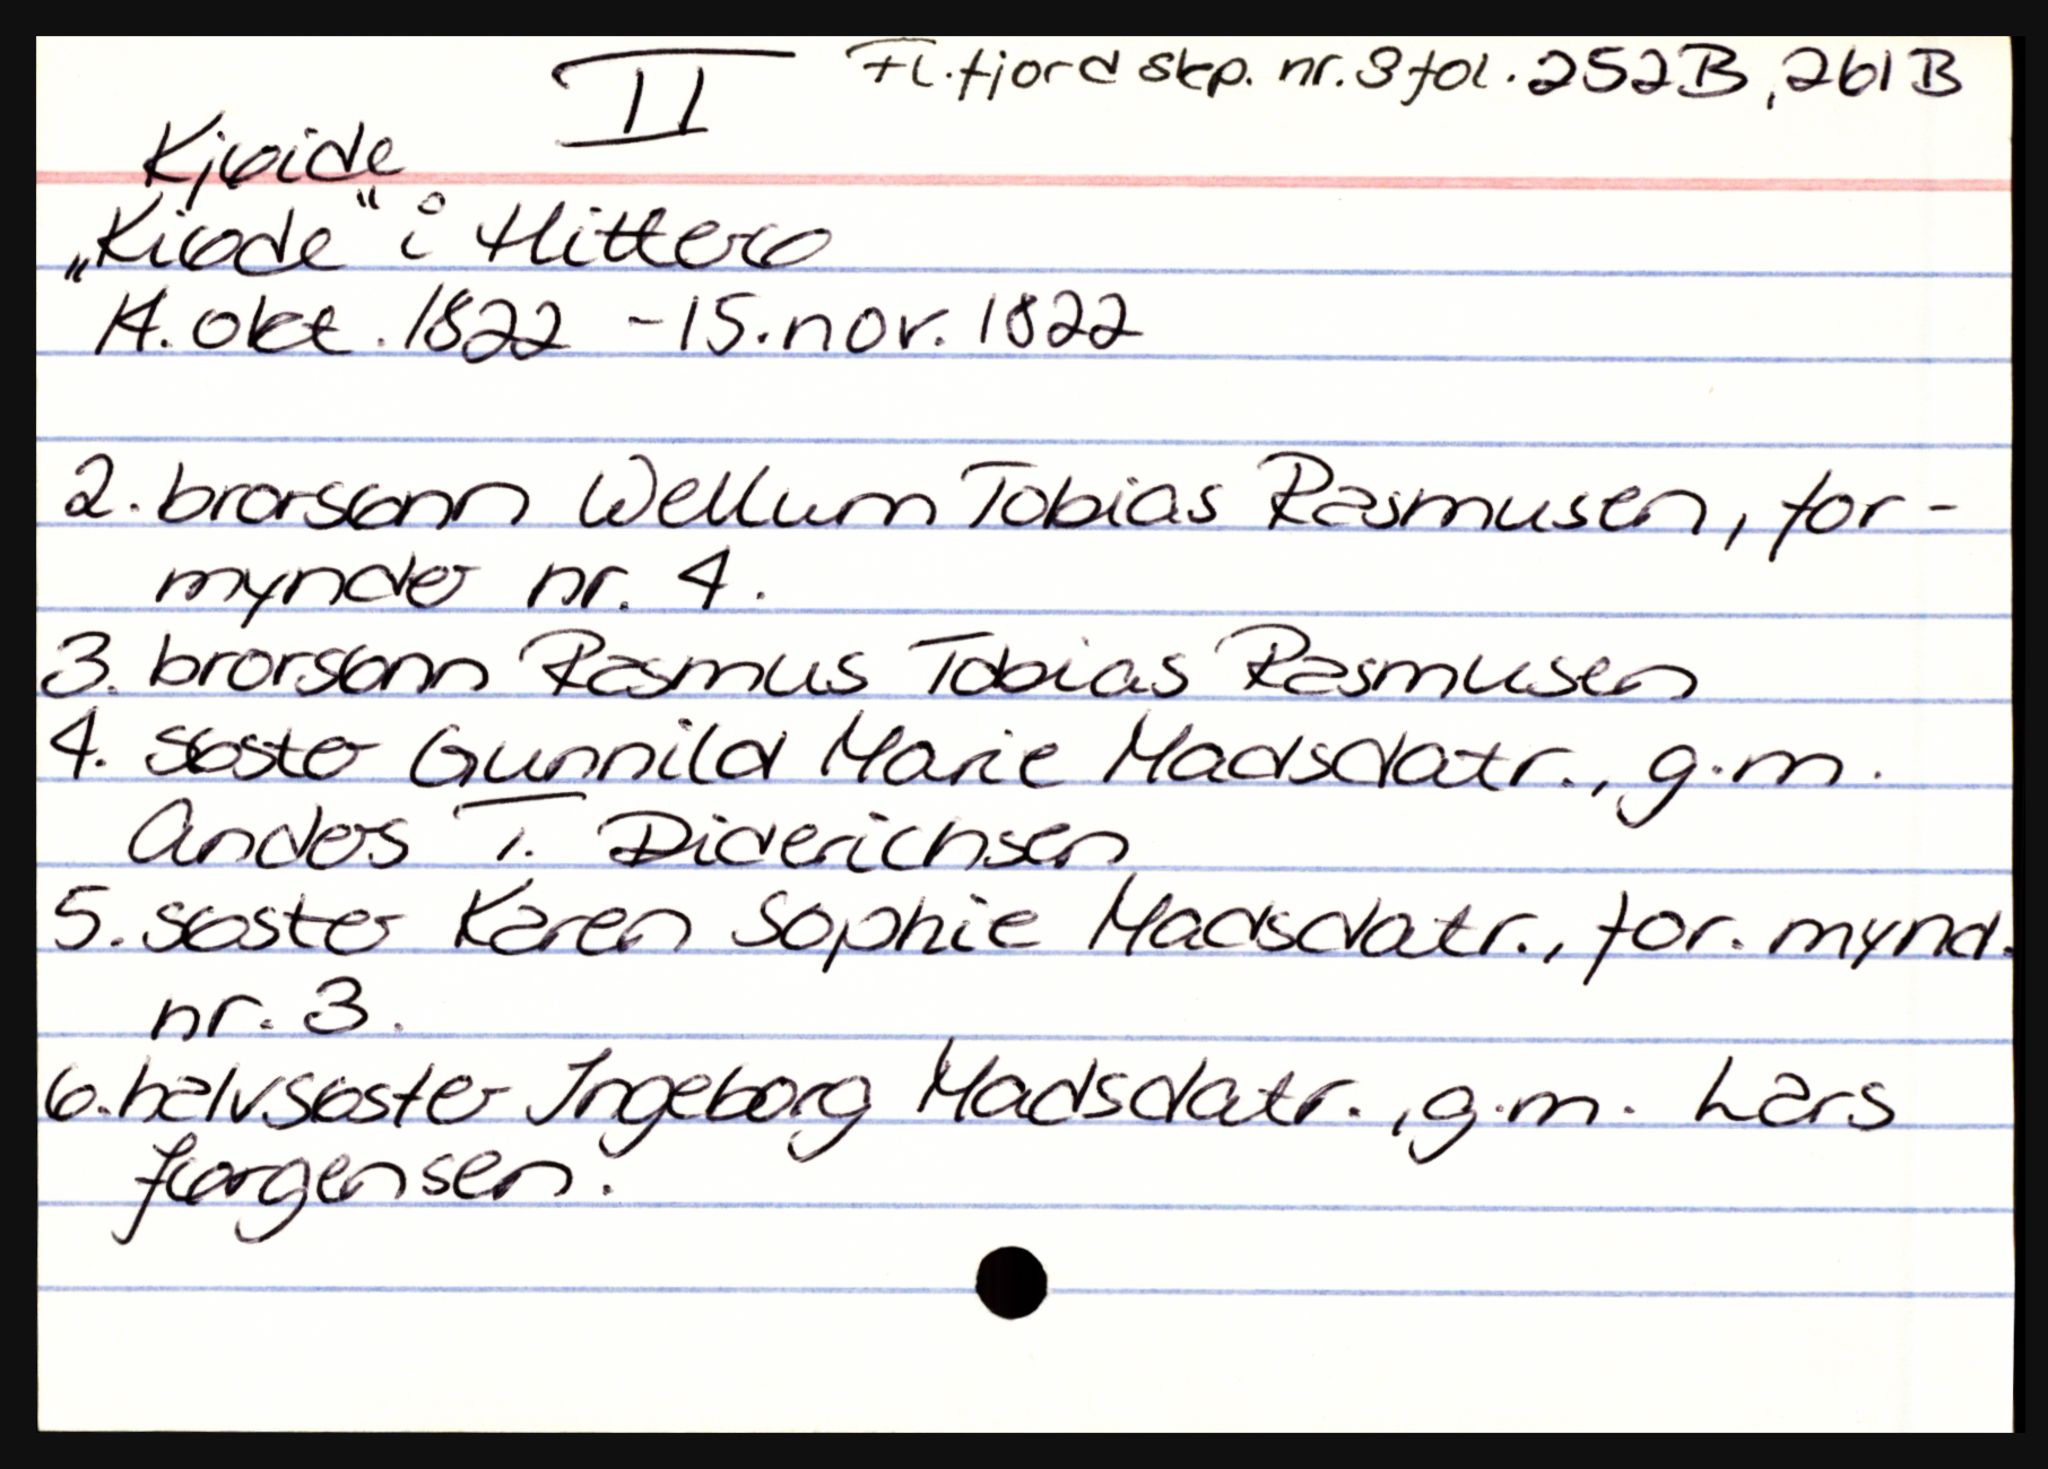 II Fl.fjord skp. nr. 8 fol. 252B, 261B
Kjøide
„Kiøde" i Hitterø
14. okt. 1822 - 15. nov. 1822
2. brorsønn Wellum Tobias Rasmusen, for-
mynder nr. 4.
3. brorsønn Rasmus Tobias Rasmusen
4. søster Gunnild Marie Madsdatr., g.m.
Anders T. Diderichsen
5. søster Karen Sophie Madsdatr., for. mynd.
nr. 3.
6. halvsøster Ingeborg Madsdatr., g.m. Lars
Jørgensen.